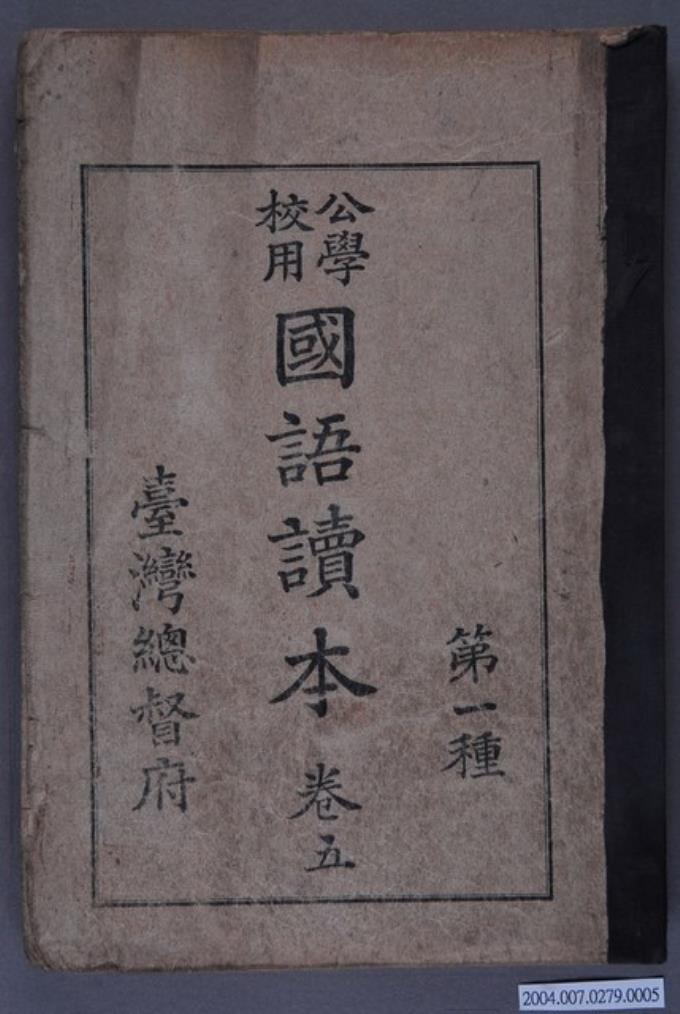 第一種
公學校用
國語讀本 卷五
臺灣總督府
2004.007.0279.0005